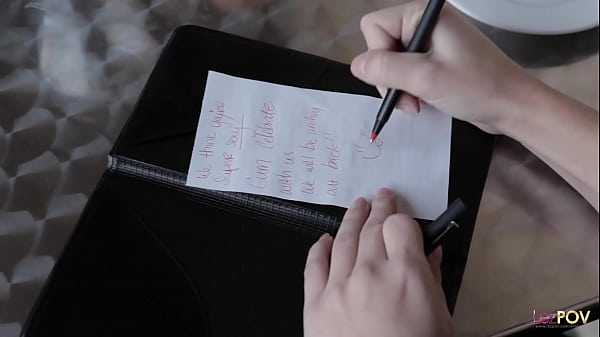 We think you're
super sexy!
Cum celebrate
with us
We will be waiting
out back!
LezPOV